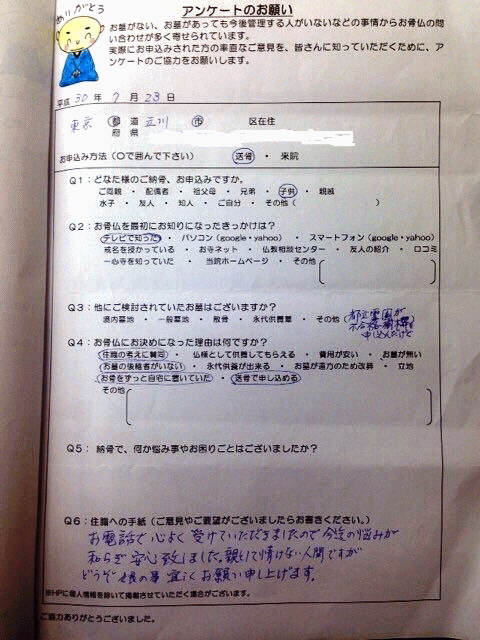 ありがとう
アンケートのお願い
お墓がない、お墓があっても今後管理する人がいないなどの事情からお骨仏の問
い合わせが多く寄せられています。
実際にお申込みされた方の率直なご意見を、皆さんに知っていただくために、ア
ンケートのご協力をお願いします。
平成 30 年 7 月 23 日
東京 都 道 立川 市 区在住
府 県
お申込み方法(○で囲んで下さい) 送骨 ・ 来院
Q1:どなた様のご納骨、お申込みですか。
ご両親 ・ 配偶者 ・ 祖父母 ・ 兄弟 ・ 子供 ・ 親戚
水子 ・ 友人 ・ 知人 ・ ご自分 ・ その他( )
Q2:お骨仏を最初にお知りになったきっかけは?
テレビで知った ・ パソコン(google・yahoo) ・ スマートフォン(google・yahoo)
戒名を授かっている ・ お寺ネット ・ 仏教相談センター ・ 友人の紹介 ・ 口コミ
一心寺を知っていた ・ 当院ホームページ ・ その他
Q3:他にご検討されていたお墓はございますか?
境内墓地 ・ 一般墓地 ・ 散骨 ・ 永代供養墓 ・ その他(都立霊園が
申込んだけど
Q4:お骨仏にお決めになった理由は何ですか?
住職の考えに賛同 ・ 仏様として供養してもらえる ・ 費用が安い ・ お墓が無い
お墓の後継者がいない ・ 永代供養が出来る ・ お墓が遠方のため改葬 ・ 立地
お骨をずっと自宅に置いていた ・ 送骨で申し込める
その他
Q5:納骨で、何か悩み事やお困りごとはございましたか?
Q6:住職への手紙(ご意見やご要望がございましたらお書きください。)
お電話で心よく受けていただきましたので今迄の悩みが
和らぎ安心致しました。親として情けない人間ですが
どうぞ娘の事宜しくお願い申し上げます。
※HPに個人情報を除いて掲載させていただく場合がございます。
ご協力ありがとうございました。